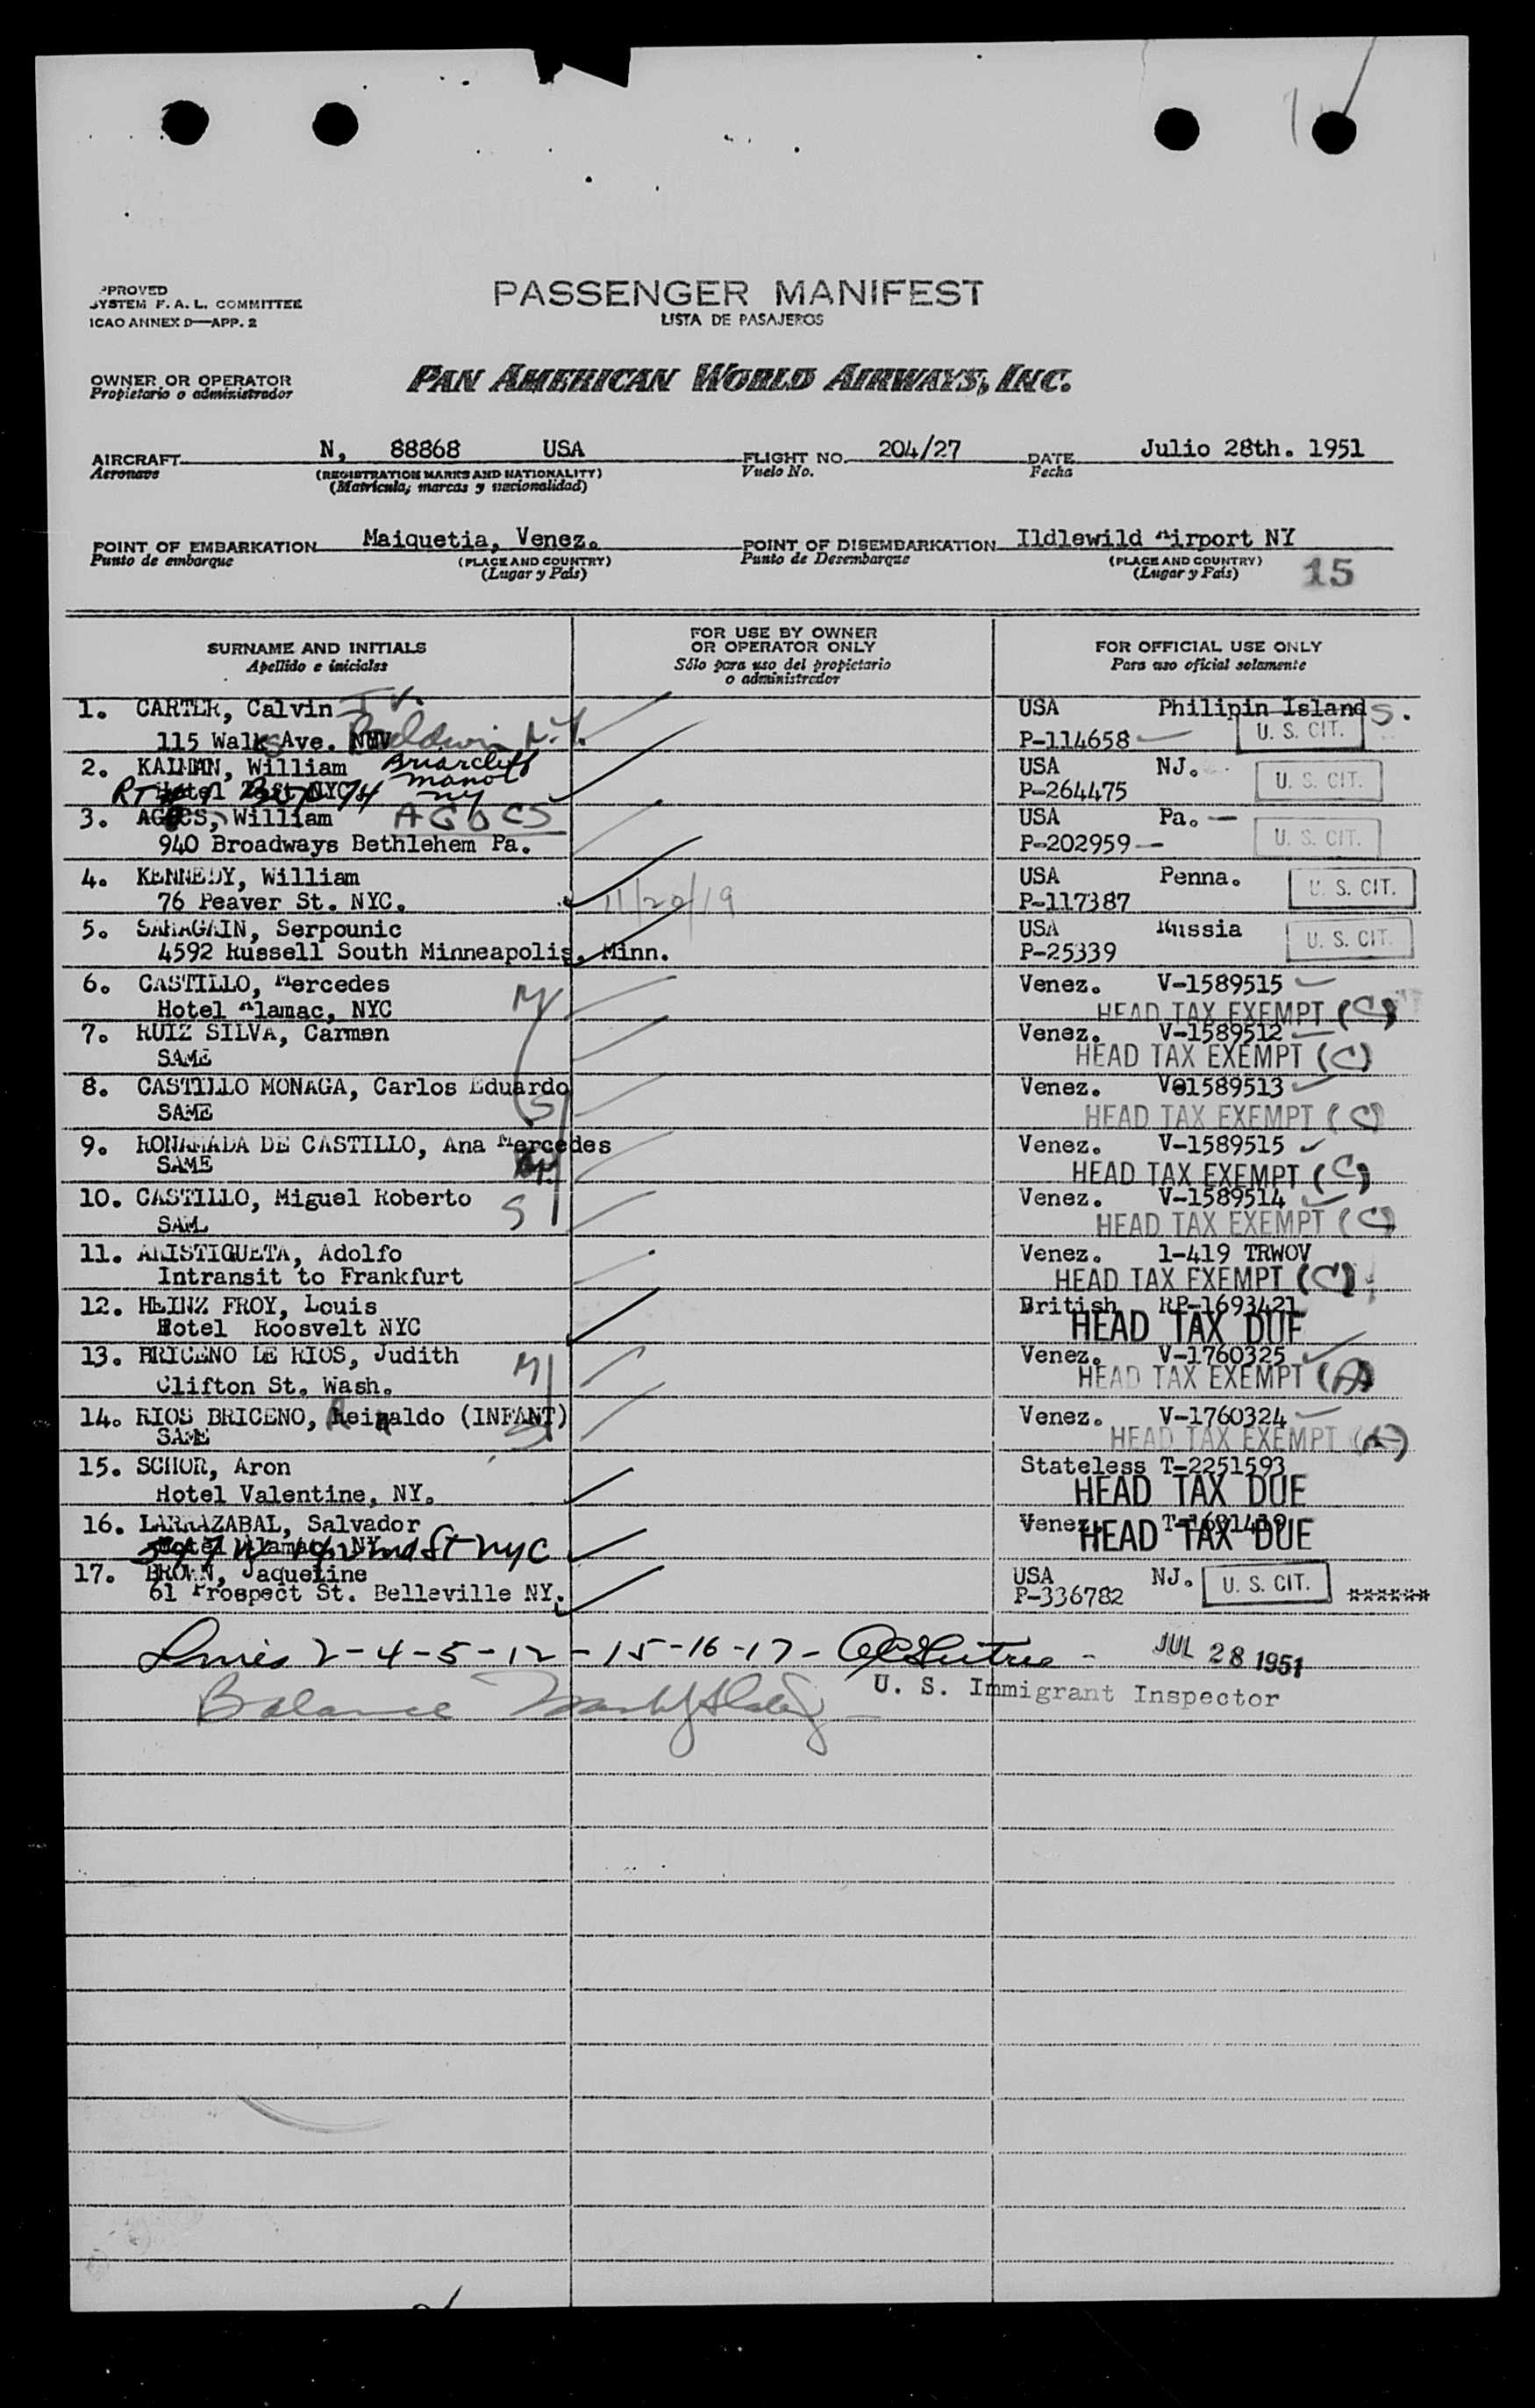 PPROVED
SYSTEM F. A. L. COMMITTEE
ICAO ANNEX 9—APP. 2
PASSENGER MANIFEST
LISTA DE PASAJEROS
OWNER OR OPERATOR
Propietario o administrador
PAN AMERICAN WORLD AIRWAYS, INC.
AIRCRAFT N, 88868 USA FLIGHT NO. 204/27 DATE Julio 28th. 1951
Aeronave (REGISTRATION MARKS AND NATIONALITY) Vuelo No. Fecha
(Matricula; marcas y nacionalidad)
POINT OF EMBARKATION Maiquetia, Venez. POINT OF DISEMBARKATION Ildlewild Airport NY
Punto de embarque (PLACE AND COUNTRY) Punto de Desembarque (PLACE AND COUNTRY)
(Lugar y País) (Lugar y País) 15
SURNAME AND INITIALS
Apellido e iniciales
FOR USE BY OWNER
OR OPERATOR ONLY
Sólo para uso del propietario
o administrador
FOR OFFICIAL USE ONLY
Para uso oficial solamente
1. CARTER, Calvin USA Philipin Islands.
115 Walks Ave. Baldwin N.Y. P-114658 U. S. CIT.
2. KALMAN, William Briarcliff USA NJ.
Hotel Taft NYC Manor NY P-264475 U. S. CIT.
3. AGOCS, William AGOCS USA Pa.
940 Broadways Bethlehem Pa. P-202959 U. S. CIT.
4. KENNEDY, William USA Penna.
76 Peaver St. NYC. 11/20/19 P-117387 U. S. CIT.
5. SARAGAIN, Serpounic USA Russia
4592 Russell South Minneapolis, Minn. P-25339 U. S. CIT.
6. CASTILLO, Mercedes Venez. V-1589515
Hotel Alamac, NYC M HEAD TAX EXEMPT (C)
7. RUIZ SILVA, Carmen Venez. V-1589512
SAME HEAD TAX EXEMPT (C)
8. CASTILLO MONAGA, Carlos Eduardo Venez. V01589513
SAME S HEAD TAX EXEMPT (C)
9. DE CASTILLO, Ana Mercedes Venez. V-1589515
SAME HEAD TAX EXEMPT (C)
10. CASTILLO, Miguel Roberto Venez. V-1589514
SAME S HEAD TAX EXEMPT (C)
11. ARISTIGUETA, Adolfo Venez. 1-419 TRWOV
Intransit to Frankfurt HEAD TAX EXEMPT (C)
12. HEINZ FROY, Louis British RP-1693421
Hotel Roosvelt NYC HEAD TAX DUE
13. BRICENO DE RIOS, Judith Venez. V-1760325
Clifton St. Wash. M HEAD TAX EXEMPT (A)
14. RIOS BRICENO, Reinaldo (INFANT) Venez. V-1760324
SAME S HEAD TAX EXEMPT (A)
15. SCHOR, Aron Stateless T-2251593
Hotel Valentine, NY. HEAD TAX DUE
16. LARRAZABAL, Salvador Venez.
Hotel Alamac, NY St NYC HEAD TAX DUE
17. BROWN, Jaqueline USA NJ.
61 Prospect St. Belleville NY. P-336782 U. S. CIT. ******
2-4-5-12-15-16-17- JUL 28 1951
Balance U. S. Immigrant Inspector